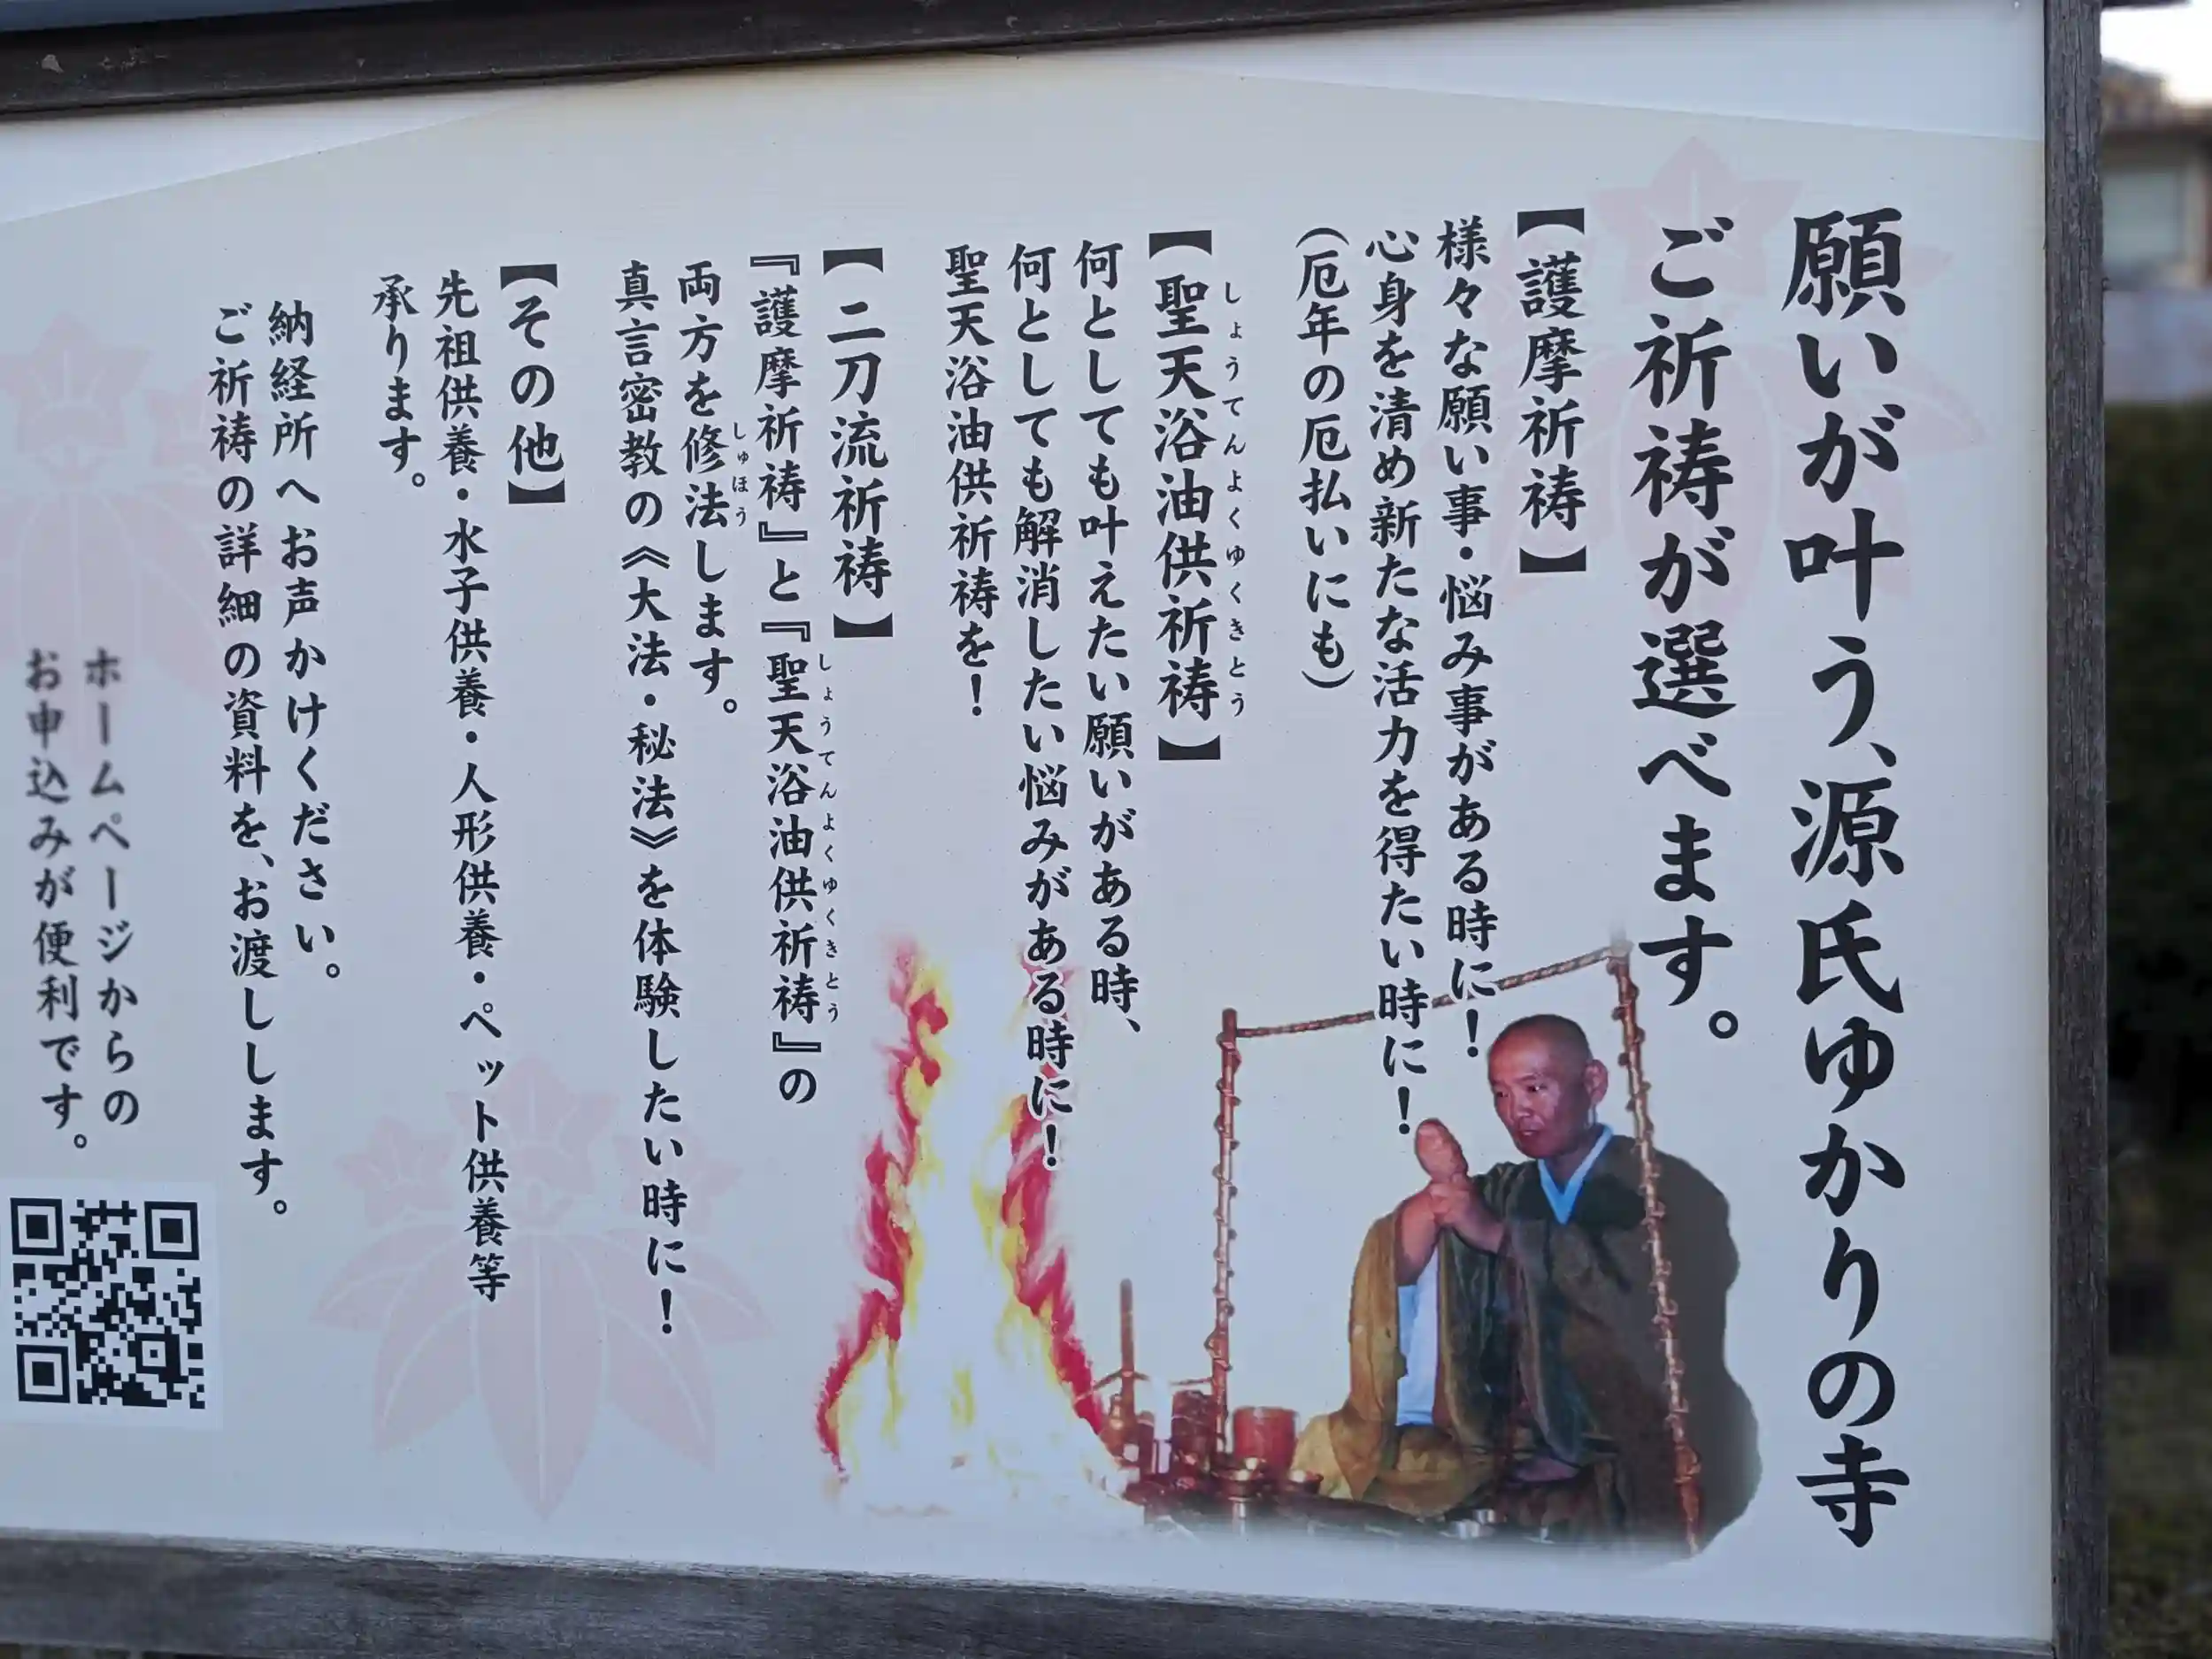 願いが叶う、源氏ゆかりの寺
ご祈祷が選べます。
【護摩祈祷】
様々な願い事・悩み事がある時に！
心身を清め新たな活力を得たい時に！
（厄年の厄払いにも）
【聖天浴油供祈祷】
しょうてんよくゆくきとう
何としても叶えたい願いがある時、
何としても解消したい悩みがある時に！
聖天浴油供祈祷を！
【二刀流祈祷】
『護摩祈祷』と『聖天浴油供祈祷』の
しょうてんよくゆくきとう
両方を修法します。
しゅほう
真言密教の《大法・秘法》を体験したい時に！
【その他】
先祖供養・水子供養・人形供養・ペット供養等
承ります。
納経所へお声かけください。
ご祈祷の詳細の資料を、お渡しします。
ホームページからの
お申込みが便利です。